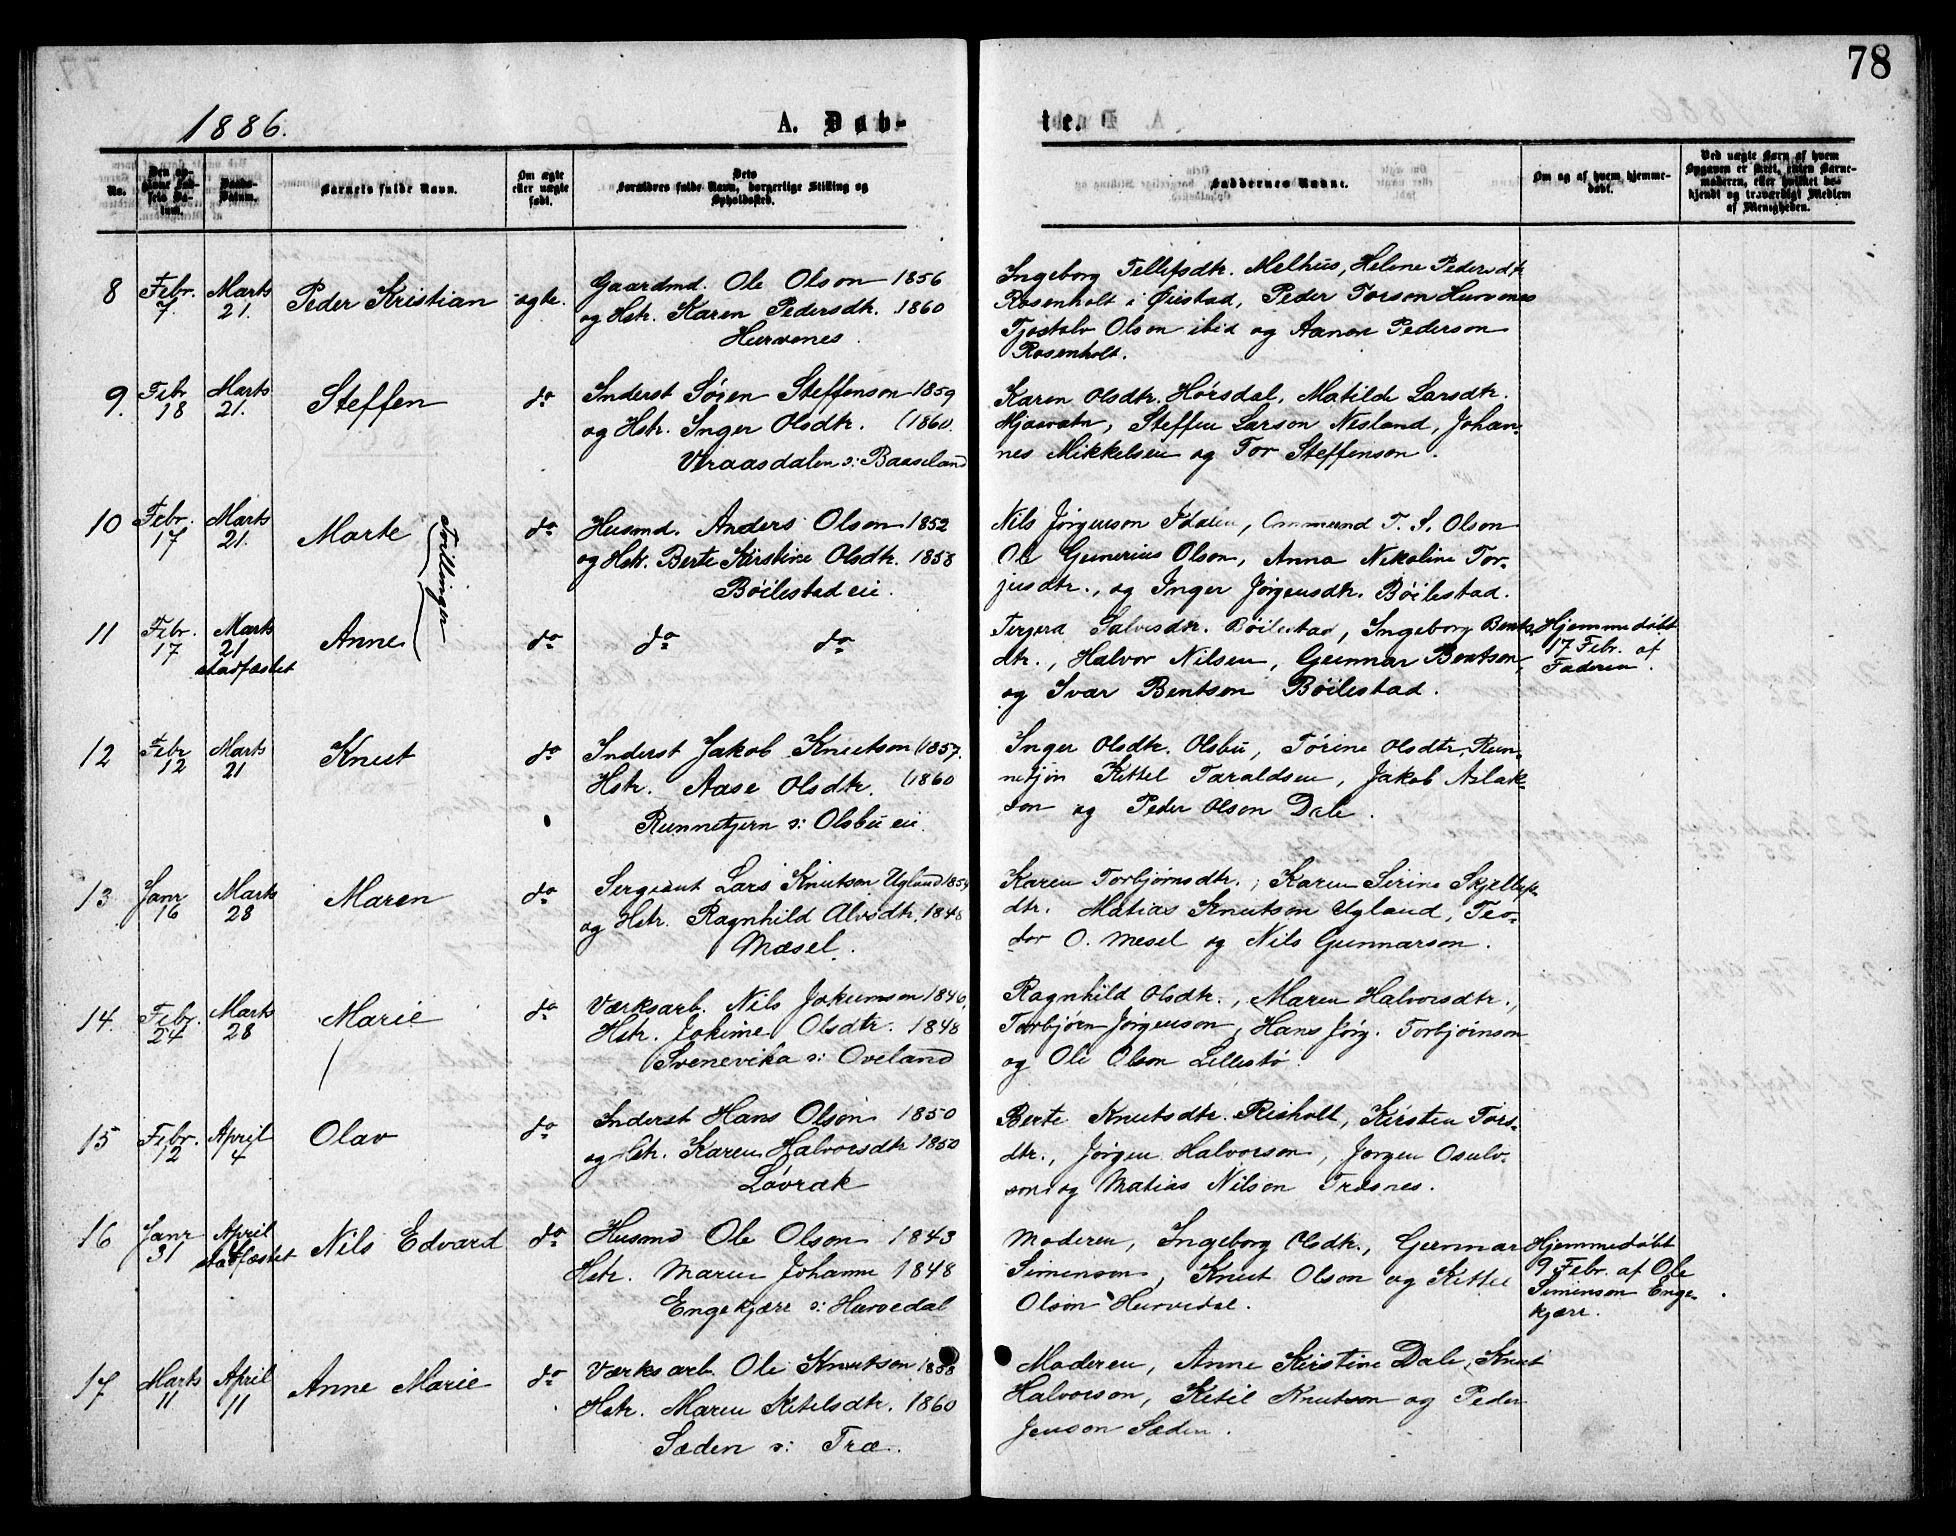 78
1886.
A. Døb-
te.
No.
Den opgivne Fødsels Datum.
Daabs-Datum.
Barnets fulde Navn.
Om ægte eller uægte født.
Dets Forældres fulde Navn, borgerlige Stilling og Opholdssted.
Faddernes Navne.
Om og af hvem hjemmedøbt.
Ved uægte Børn af hvem Opgaven er skeet, enten Barnemoderen, eller hvilket bekjendt og troværdigt Medlem af Menigheden.
8 Febr. 7. Marts 21. Peder Kristian ægte.
Gaardmd. Ole Olson 1856
og Hstr. Karen Pedersdtr. 1860
Hurvenes
Ingeborg Tellefsdtr. Melhus, Helene Pedersdtr
Rosenholt i Øiestad, Peder Torson Hurvenes
Tjostolv Olson ibid og Aanon Pederson
Rosenholt.
9. Febr 18 Marts 21. Steffen do
Inderst Søren Steffenson 1859
og Hstr. Inger Olsdtr. (1860.
Vraasdalen o: Baaseland
Karen Olsdtr. Hørsdal, Matilde Larsdtr.
Mjaavatn, Steffen Larson Nesland, Johan-
nes Mikkelsen og Tor Steffenson.
10 Febr. 17 Marts 21. Marte do
Tvillinger
Husmd. Anders Olson 1852
og Hstr. Berte Kirstine Olsdtr. 1858
Bøilestad eie.
Nils Jørgenson Idalen, Ommund T. S. Olson
Ole Gunerius Olson, Anna Nikoline Tor-
jusdtr., og Inger Jørgensdtr. Bøilestad.
11 Febr. 17 Marts 21 stadfæstet Anne do do do
Tergerd Salvesdtr. Bøilestad, Ingeborg Bents-
dtr., Halvor Nilsen, Gunnar Bentson,
og Ivar Bentson Bøilestad.
Hjemmedøbt
17 Febr. af
Faderen.
12 Febr 12 Marts 21 Knut do
Inderst Jakob Knutson (1857.
Hstr. Aase Olsdtr. (1860
Runnetjern o: Olsbu eie.
Inger Olsdtr. Olsbu, Tørine Olsdtr. Run-
netjøn Kittel Taraldsen, Jakob Aslak-
son og Peder Olson Dale.
13 Janr 16 Marts 28 Maren do
Sergeant Lars Knutson Ugland 1854
og Hstr. Ragnhild Alvsdtr. 1848
Mæsel.
Karen Torbjørnsdtr., Karen Sirine Skjellep-
dtr. Matias Knutson Ugland, Teo-
dor O. Mesel og Nils Gunnarson.
14. Febr. 24 Marts 28 Marie do
Værksarb. Nils Jokumson 1846,
Hstr. Jokime Olsdtr. 1848
Svenevika o: Oveland
Ragnhild Olsdtr., Maren Halvorsdtr.,
Torbjørn Jørgenson, Hans Jørg. Torbjørnson
og Ole Olson Lillestø.
15 Febr. 12 April 4 Olav do
Inderst Hans Olson 1850
og Hstr. Karen Halvorsdtr 1850
Løvrak
Berte Knutsdtr. Risholt, Kirsten Tors-
dtr., Jørgen Halvorson, Jorgen Osulv-
son og Matias Nilson Træsnes.
16 Janr 31 April stadfæstet Nils Edvard do
Husmd Ole Olson 1843
Hstr. Maren Johanne 1848
Engekjærr o: Hurvedal
Moderen, Ingeborg Olsdtr., Gunnar
Simenson, Knut Olson og Kittel
Olson Hurvedal.
Hjemmedøbt
9 Febr. af Ole
Simenson Enge-
kjærr.
17 Marts 11 April 11 Anne Marie do
Værksarb. Ole Knutson 1858
Hstr. Maren Ketilsdtr. 1860
Sæden o: Træ.
Moderen, Anne Kirstine Dale, Knut
Halvorson, Ketil Knutson og Peder
Jenson Sæden.